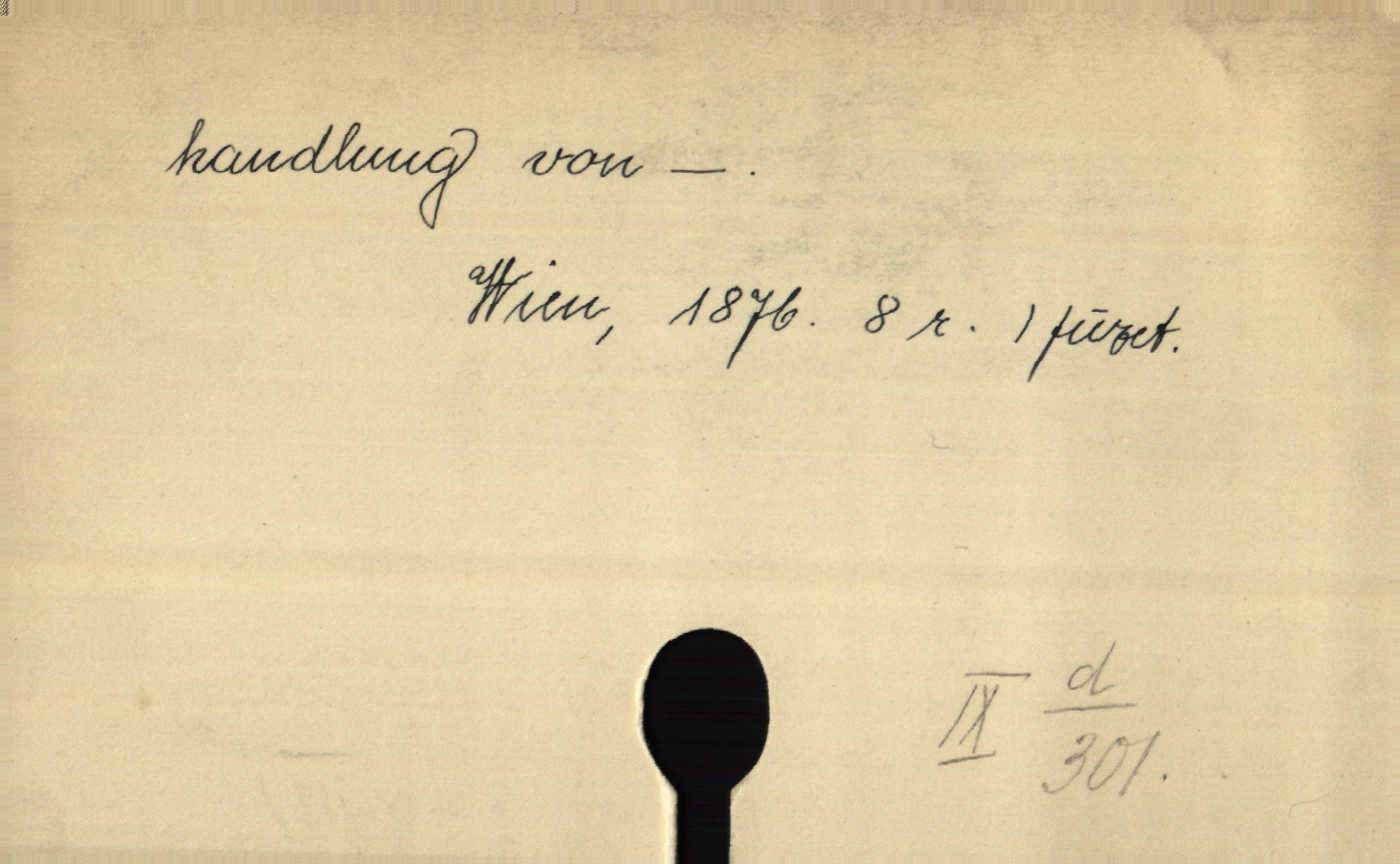 handlung von —.
Wien, 1876. 8 r. 1 füzet.
IX d/301.